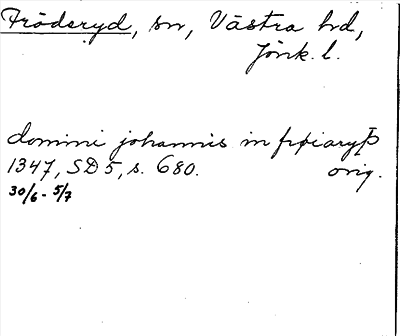 Frödaryd, sn, Västra hd,
Jönk. l.
domini johannis in frøiaryþ
1347, SD 5, s. 680. orig.
30/6 - 5/7